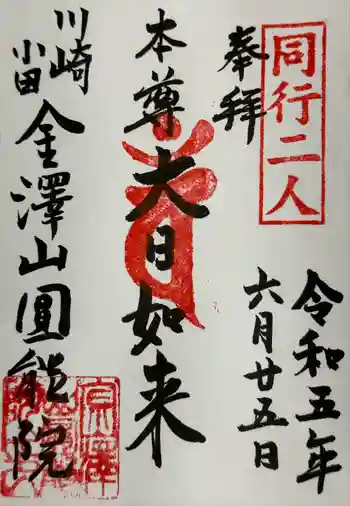 同行二人
奉拝
令和五年
六月廿五日
本尊
大日如来
川崎
小田
金澤山圓能院